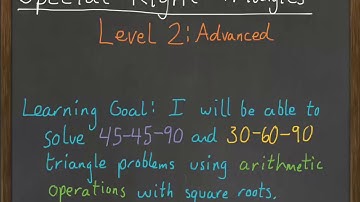 Special Right Triangles
Level 2: Advanced
Learning Goal: I will be able to
solve 45-45-90 and 30-60-90
triangle problems using arithmetic
operations with square roots.